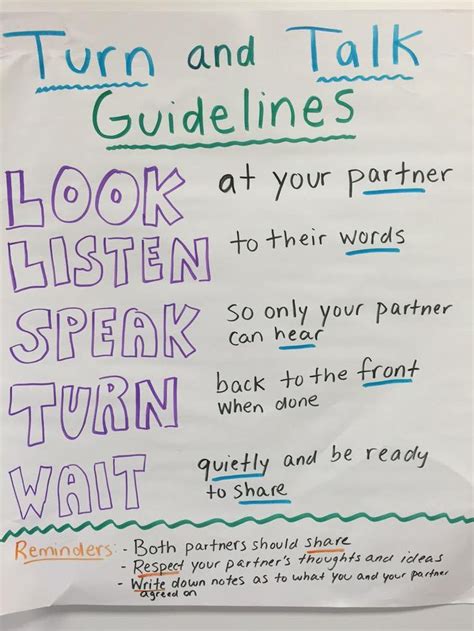 Turn and Talk
Guidelines
LOOK at your partner
LISTEN to their words
SPEAK so only your partner
can hear
TURN back to the front
when done
WAIT quietly and be ready
to share
Reminders: - Both partners should share
- Respect your partner's thoughts and ideas
- Write down notes as to what you and your partner
agreed on